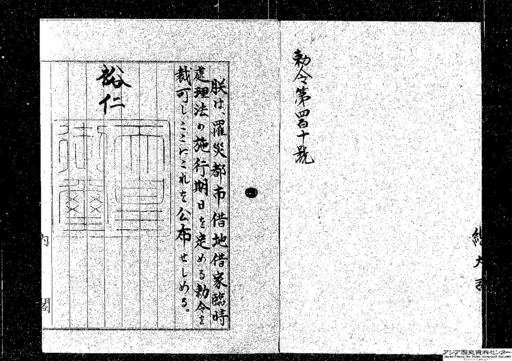 勅令第四百十號
朕は、罹災都市借地借家臨時
處理法の施行期日を定める勅令を
裁可し、ここにこれを公布せしめる。
裕仁
天皇
御璽
内閣
アジア歴史資料センター